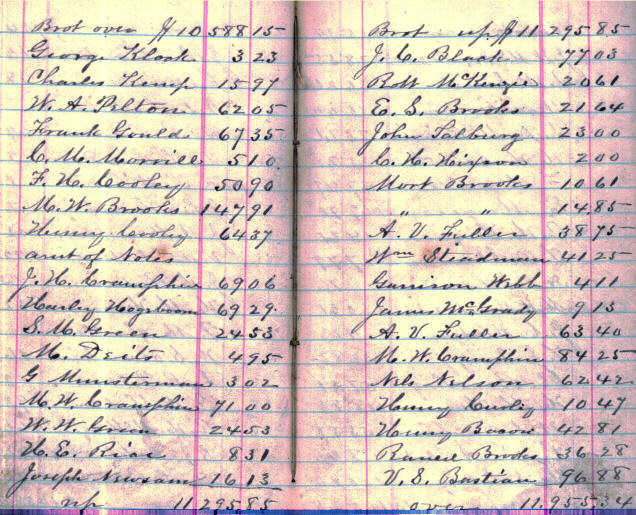 Brot over $10 588 15
George Klock 3 23
Charles Kemp 15 97
W. A. Pelton 62 05
Frank Gould 67 35
C. M. Morrill 5 10
F. H. Cooley 50 90
M. W. Brooks 147 91
Henry Cooley 64 37
amt of Notes
J. H. Cramphin 69 06
Harley Hogeboom 69 29
S. M. Green 24 53
M. Deits 4 95
G Munsterman 3 02
M. W. Cramphin 71 00
W. W. Green 24 53
H. E. Rice 8 31
Joseph Newsam 16 13
up 11 295.85
Brot up $11 295 85
J. C. Black 77 03
Robt McKenzie 20 61
E. S. Brooks 21 64
John Salburg 23 00
C. H. Hixson 2 00
Mort Brooks 10 61
" " 14.85
A. V. Fuller 38 75
Wm Steadman 41 25
Garrison Webb 4 11
James McGrady 9 13
A. V. Fuller 63 40
M. W. Cramphin 84 25
Nels Nelson 62 42
Henry 10 47
Henry Bacon 42 81
Brooks 36 28
V. S. Bastian 96 88
over 11.955.34